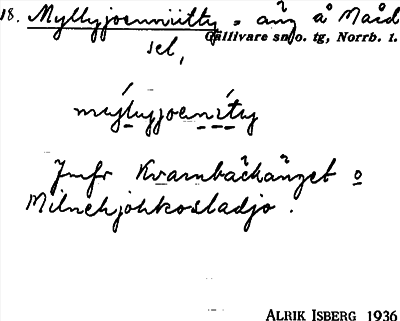 18. Myllyjoenniitty = äng å Nåid
sel,
Gällivare sn o. tg, Norrb. l.
myĺlyjoeníty
Jmfr Kvarnbäckänget o
Milnekjohkosladjo.
ALRIK ISBERG 1936